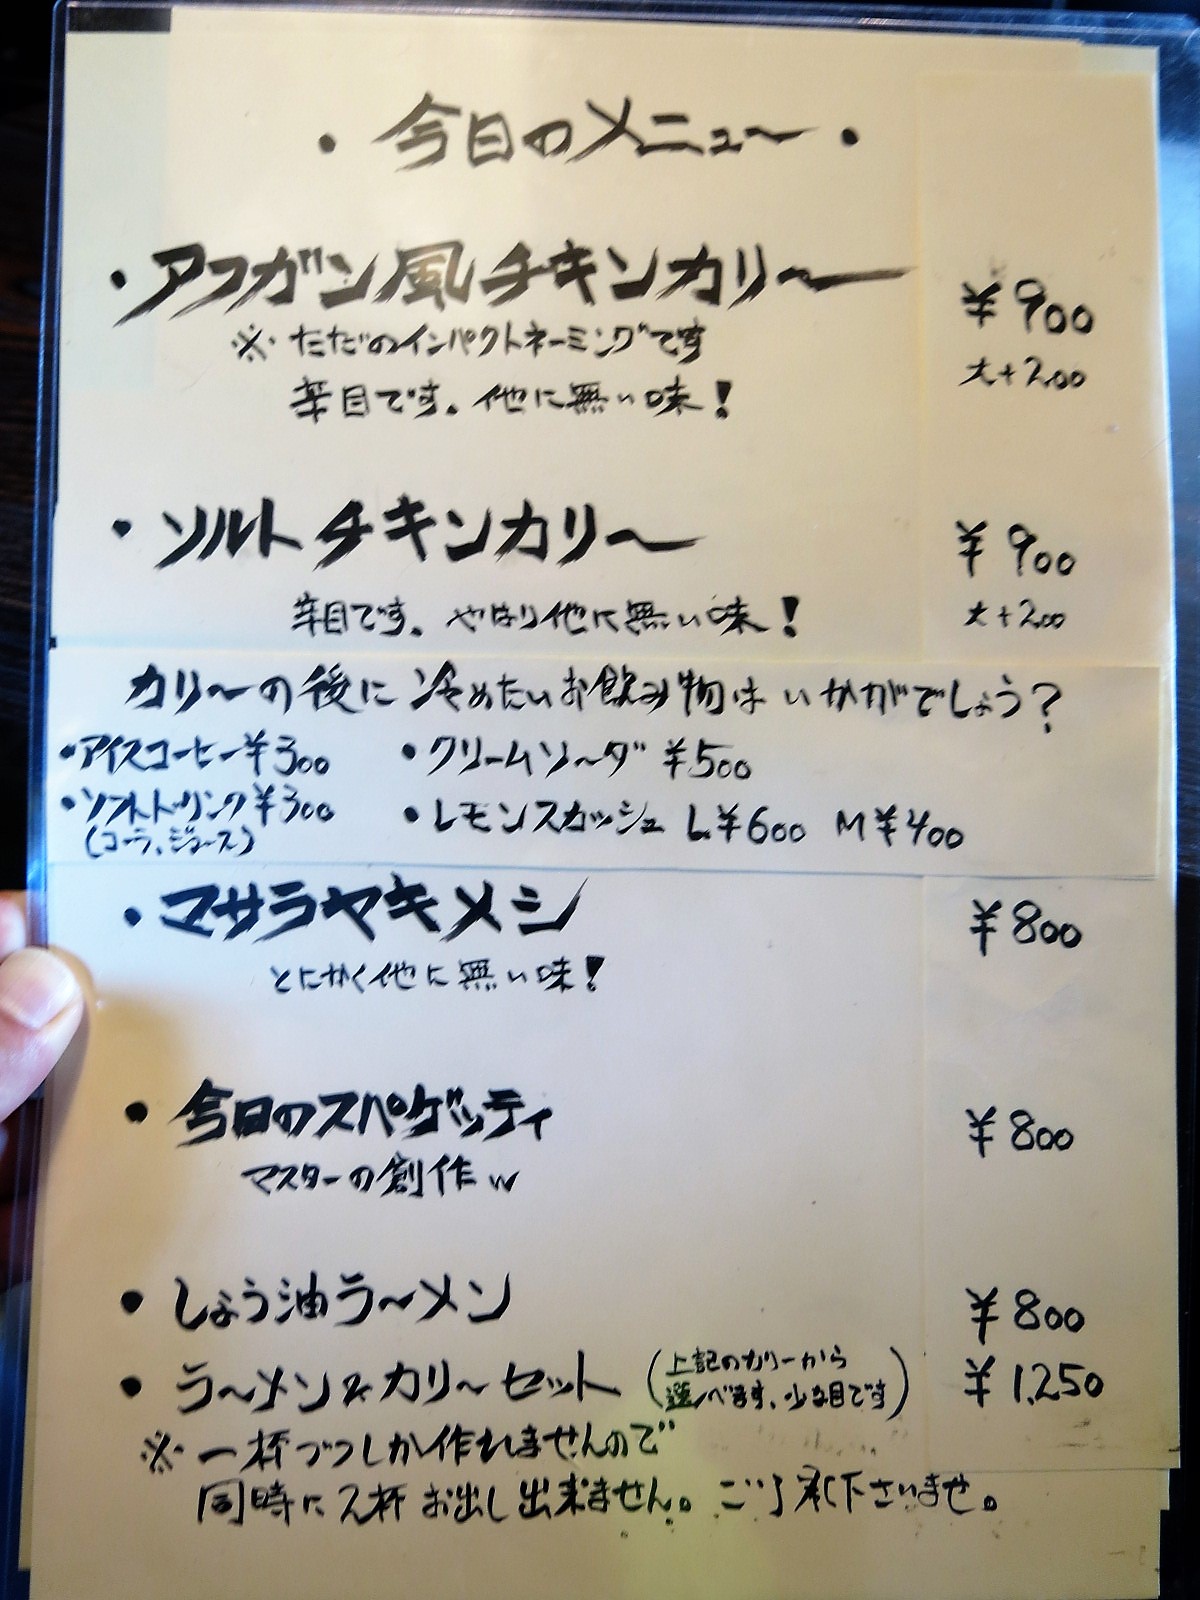 ・今日のメニュ〜・
・アフガン風チキンカリ〜 ¥900
※ただのインパクトネーミングです 大+200
辛目です。他に無い味!
・ソルトチキンカリ〜 ¥900
辛目です。やはり他に無い味! 大+200
カリ〜の後に冷めたいお飲み物はいかがでしょう?
・アイスコーヒー¥300 ・クリームソ〜ダ ¥500
・ソフトドリンク¥300 ・レモンスカッシュ L¥600 M¥400
(コーラ、ジュース)
・マサラヤキメシ ¥800
とにかく他に無い味!
・今日のスパゲッティ ¥800
マスターの創作w
・しょう油ラ〜メン ¥800
・ラ〜メン&カリ〜セット (上記のカリーから ¥1,250
選べます、少な目です)
※一杯づつしか作れませんので
同時に2杯お出し出来ません。ご了承下さいませ。